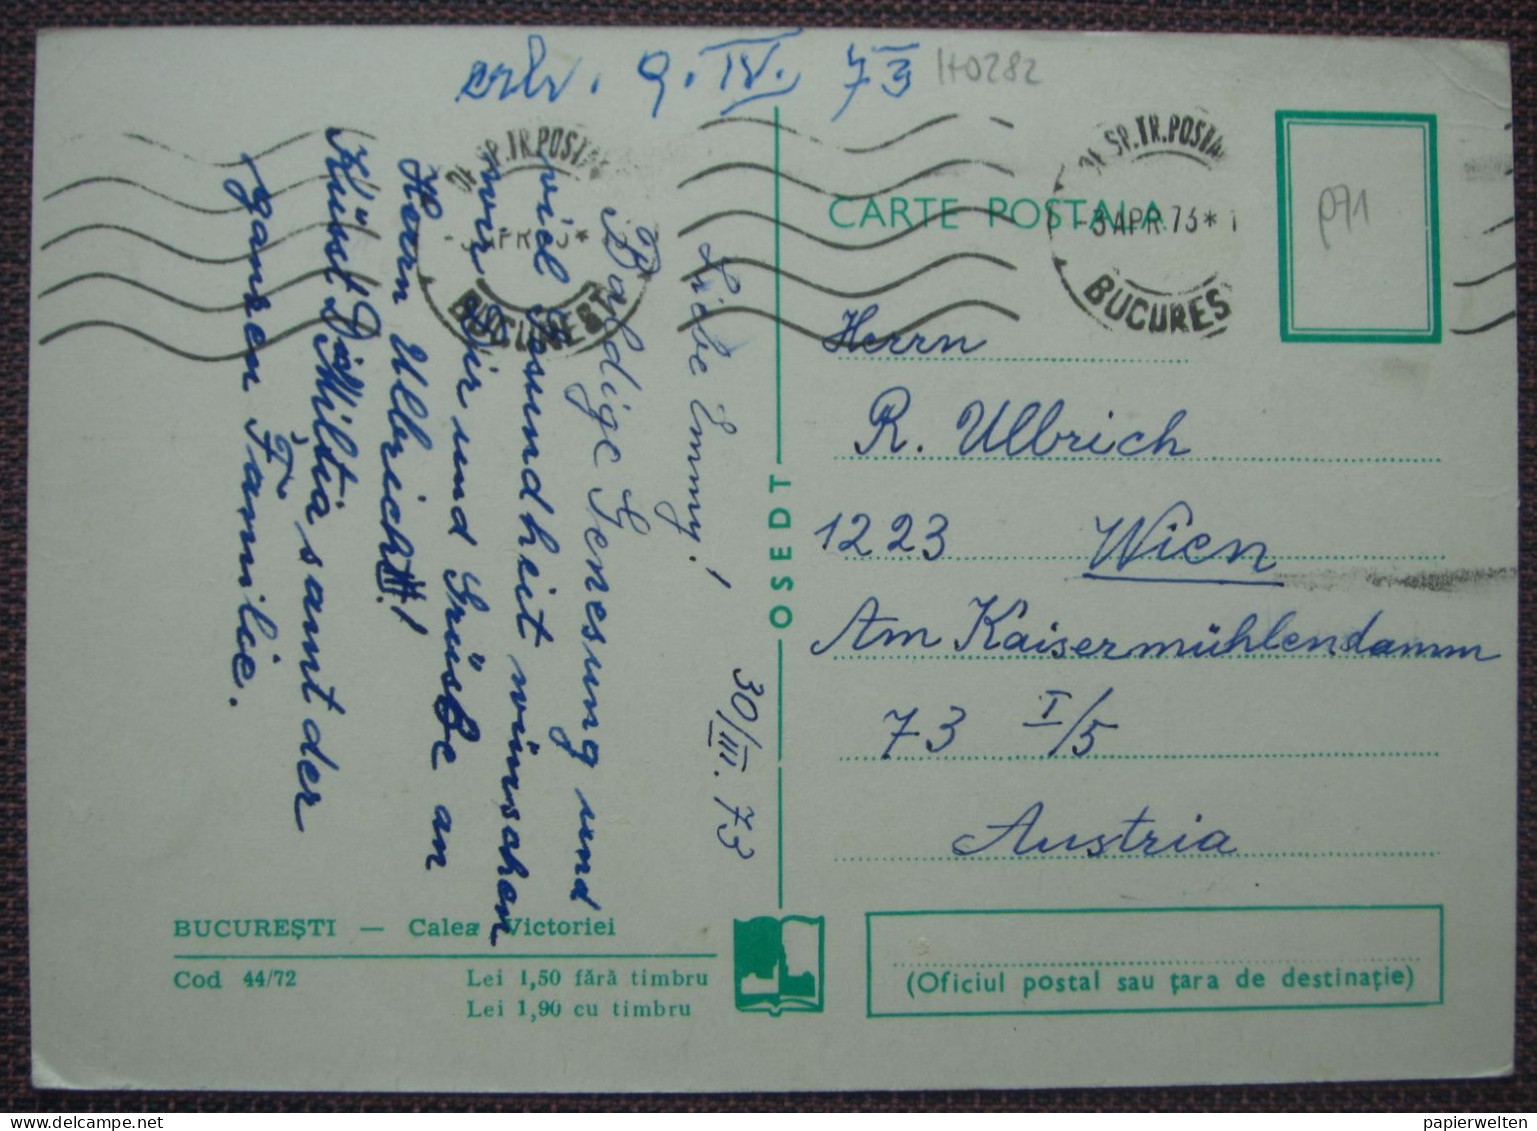 erh. 9. IV. 73
H0282
SP.TR.POSTA
APR
BUCUREST
SP.TR.POSTA
-3 APR.73* 1
BUCURES
p71
CARTE POSTALA
30/III. 73
Liebe Emmy!
Baldige Genesung und
viel Gesundheit wünschen
wir Dir und Grüsse an
Herrn Ullrich!
Miltia samt der
ganzen Familie.
OSEDT
Herrn
R. Ullrich
1223 Wien
Am Kaisermühlendamm
73 I/5
Austria
BUCUREȘTI — Calea Victoriei
Cod 44/72
Lei 1,50 fără timbru
Lei 1,90 cu timbru
(Oficiul postal sau țara de destinație)
papierwelten